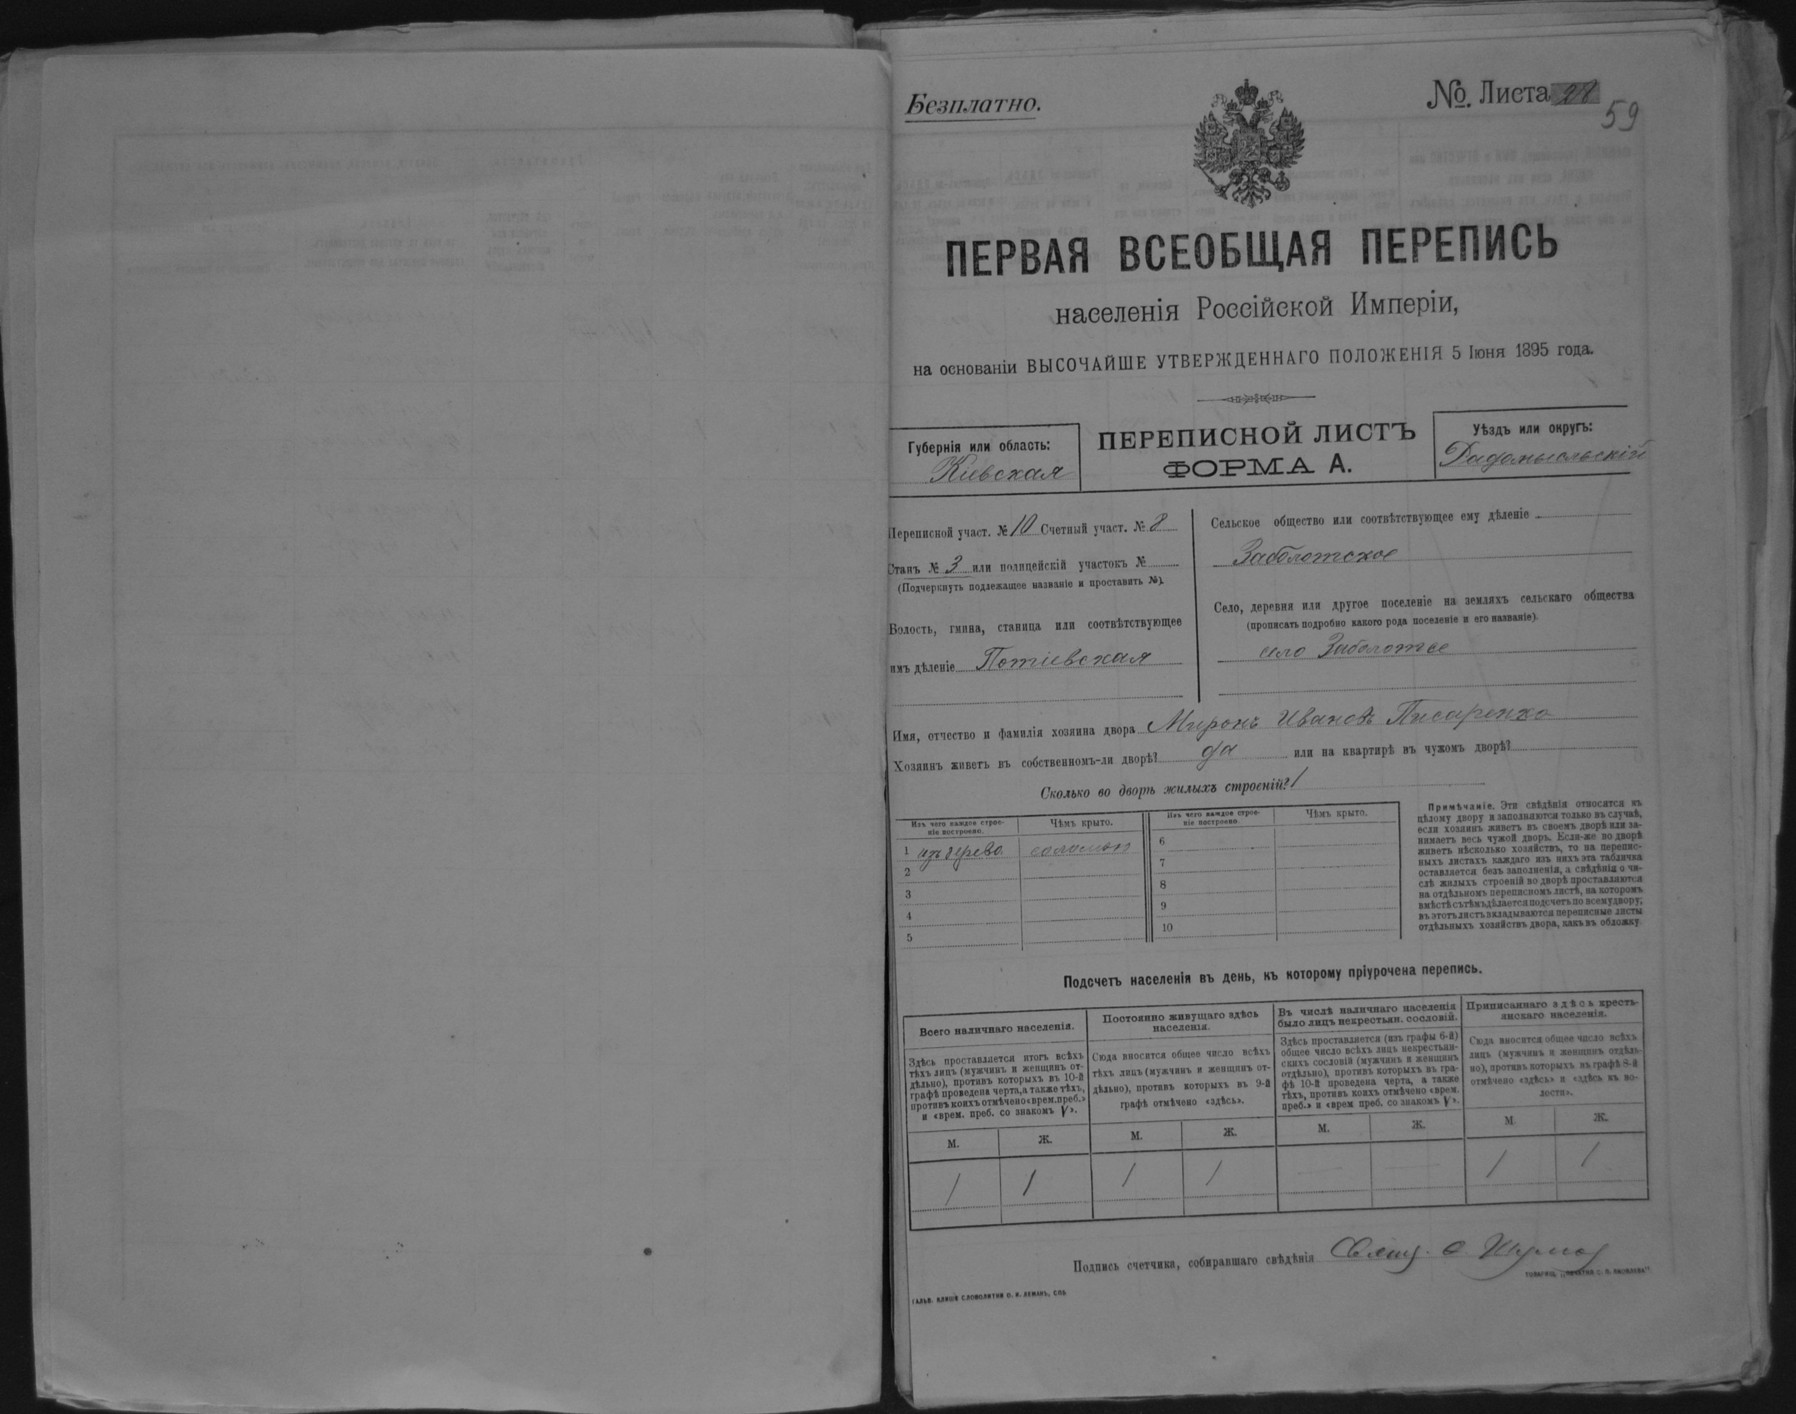 Безплатно.
№ Листа 28
59
ПЕРВАЯ ВСЕОБЩАЯ ПЕРЕПИСЬ
населенія Россійской Имперіи,
на основаніи ВЫСОЧАЙШЕ УТВЕРЖДЕННАГО ПОЛОЖЕНІЯ 5 Іюня 1895 года.
Губернія или область:
Кіевская
ПЕРЕПИСНОЙ ЛИСТЪ
ФОРМА А.
Уѣздъ или округъ:
Радомысльскій
Переписной участ. № 10 Счетный участ. № 8
Станъ № 3 или полицейскій участокъ №
(Подчеркнуть подлежащее названіе и проставить №).
Волость, гмина, станица или соотвѣтствующее
имъ дѣленіе Потіевская
Сельское общество или соотвѣтствующее ему дѣленіе
Заболотское
Село, деревня или другое поселеніе на земляхъ сельскаго общества
(прописать подробно какого рода поселеніе и его названіе).
село Заболотье
Имя, отчество и фамилія хозяина двора Миронъ Ивановъ Писаренко
Хозяинъ живетъ въ собственномъ-ли дворѣ? да или на квартирѣ въ чужомъ дворѣ?
Сколько во дворѣ жилыхъ строеній? 1
Изъ чего каждое строеніе построено.
Чѣмъ крыто.
Изъ чего каждое строеніе построено.
Чѣмъ крыто.
1 изъ дерева соломой
2
3
4
5
6
7
8
9
10
Примѣчаніе. Эти свѣдѣнія относятся къ
цѣлому двору и заполняются только въ случаѣ,
если хозяинъ живетъ въ своемъ дворѣ или за-
нимаетъ весь чужой дворъ. Если-же во дворѣ
живетъ нѣсколько хозяйствъ, то на перепис-
ныхъ листахъ каждаго изъ нихъ эта табличка
оставляется безъ заполненія, а свѣдѣнія о чи-
слѣ жилыхъ строеній во дворѣ проставляются
на отдѣльномъ переписномъ листѣ, на которомъ
вмѣстѣ съ тѣмъ дѣлается подсчетъ по всему двору;
въ этотъ листъ вкладываются переписные листы
отдѣльныхъ хозяйствъ двора, какъ въ обложку.
Подсчетъ населенія въ день, къ которому пріурочена перепись.
Всего наличнаго населенія.
Здѣсь проставляется итогъ всѣхъ
тѣхъ лицъ (мужчинъ и женщинъ от-
дѣльно), противъ которыхъ въ 10-й
графѣ проведена черта, а также тѣхъ,
противъ коихъ отмѣчено «врем. преб.»
и «врем. преб. со знакомъ V».
Постоянно живущаго здѣсь
населенія.
Сюда вносится общее число всѣхъ
тѣхъ лицъ (мужчинъ и женщинъ от-
дѣльно), противъ которыхъ въ 9-й
графѣ отмѣчено «здѣсь».
Въ числѣ наличнаго населенія
было лицъ некрестьян. сословій.
Здѣсь проставляется (изъ графы 6-й)
общее число всѣхъ лицъ некрестьян-
скихъ сословій (мужчинъ и женщинъ
отдѣльно), противъ которыхъ въ гра-
фѣ 10-й проведена черта, а также
тѣхъ, противъ коихъ отмѣчено «врем.
преб.» и «врем преб. со знакомъ V».
Приписаннаго здѣсь кресть-
янскаго населенія.
Сюда вносится общее число всѣхъ
лицъ (мужчинъ и женщинъ отдѣль-
но), противъ которыхъ въ графѣ 8-й
отмѣчено «здѣсь» и «здѣсь въ во-
лости».
М. Ж. М. Ж. М. Ж. М. Ж.
1 1 1 1 — — 1 1
Подпись счетчика, собиравшаго свѣдѣнія Свящ.